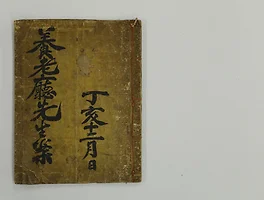 丁亥十二月日
養老廳先生案